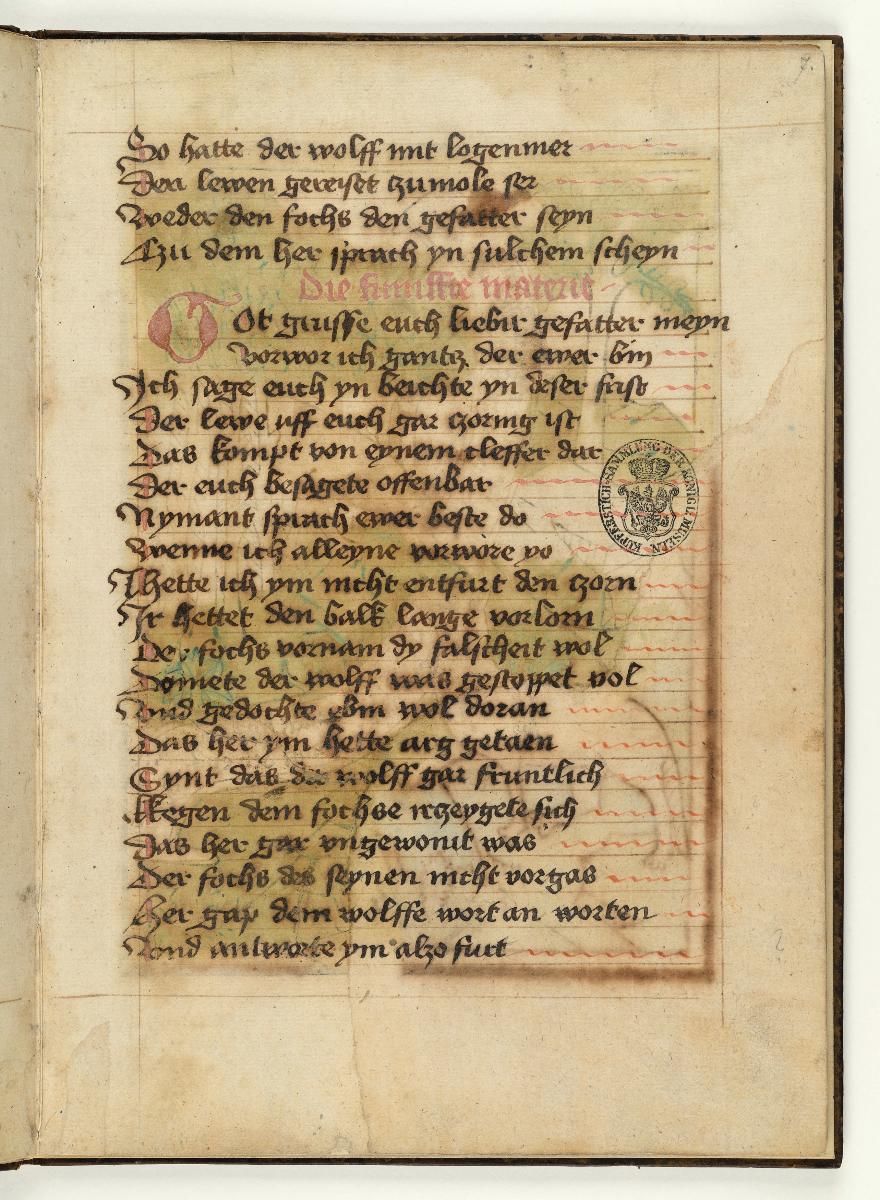 7.
So hatte der wolff mit logenmer
Den lewen gereiset czumole ser
Weder den fochs den gefatter seyn
Czu dem her sprach yn sulchem scheyn
Die funffte materie
Got grusse euch liebir gefatter meyn
vorwor ich gantz der ewer bin
Ich sage euch yn beichte yn deser frist
Der lewe uff euch gar czornig ist
Das kompt von eynem cleffer dar
Der euch besagete offenbar
Nymant sprach ewer beste do
Wenne ich alleyne vorwore yo
Hette ich ym nicht entfurt den czorn
Ir hettet den balk lange vorlorn
Der fochs vornam dy falscheit wol
Domete der wolff was gestoppet vol
Vnd gedochte ebin wol doran
Das her ym hette arg getaen
Synt das der wolff gar fruntlich
Kegen dem fochse irczeygete sich
Das her gar vngewonit was
Der fochs des seynen nicht vorgas
Her gap dem wolffe wort an worten
Vnd antworte ym alzo furt
KUPFERSTICH-SAMMLUNG DER KÖNIGL. MUSEEN